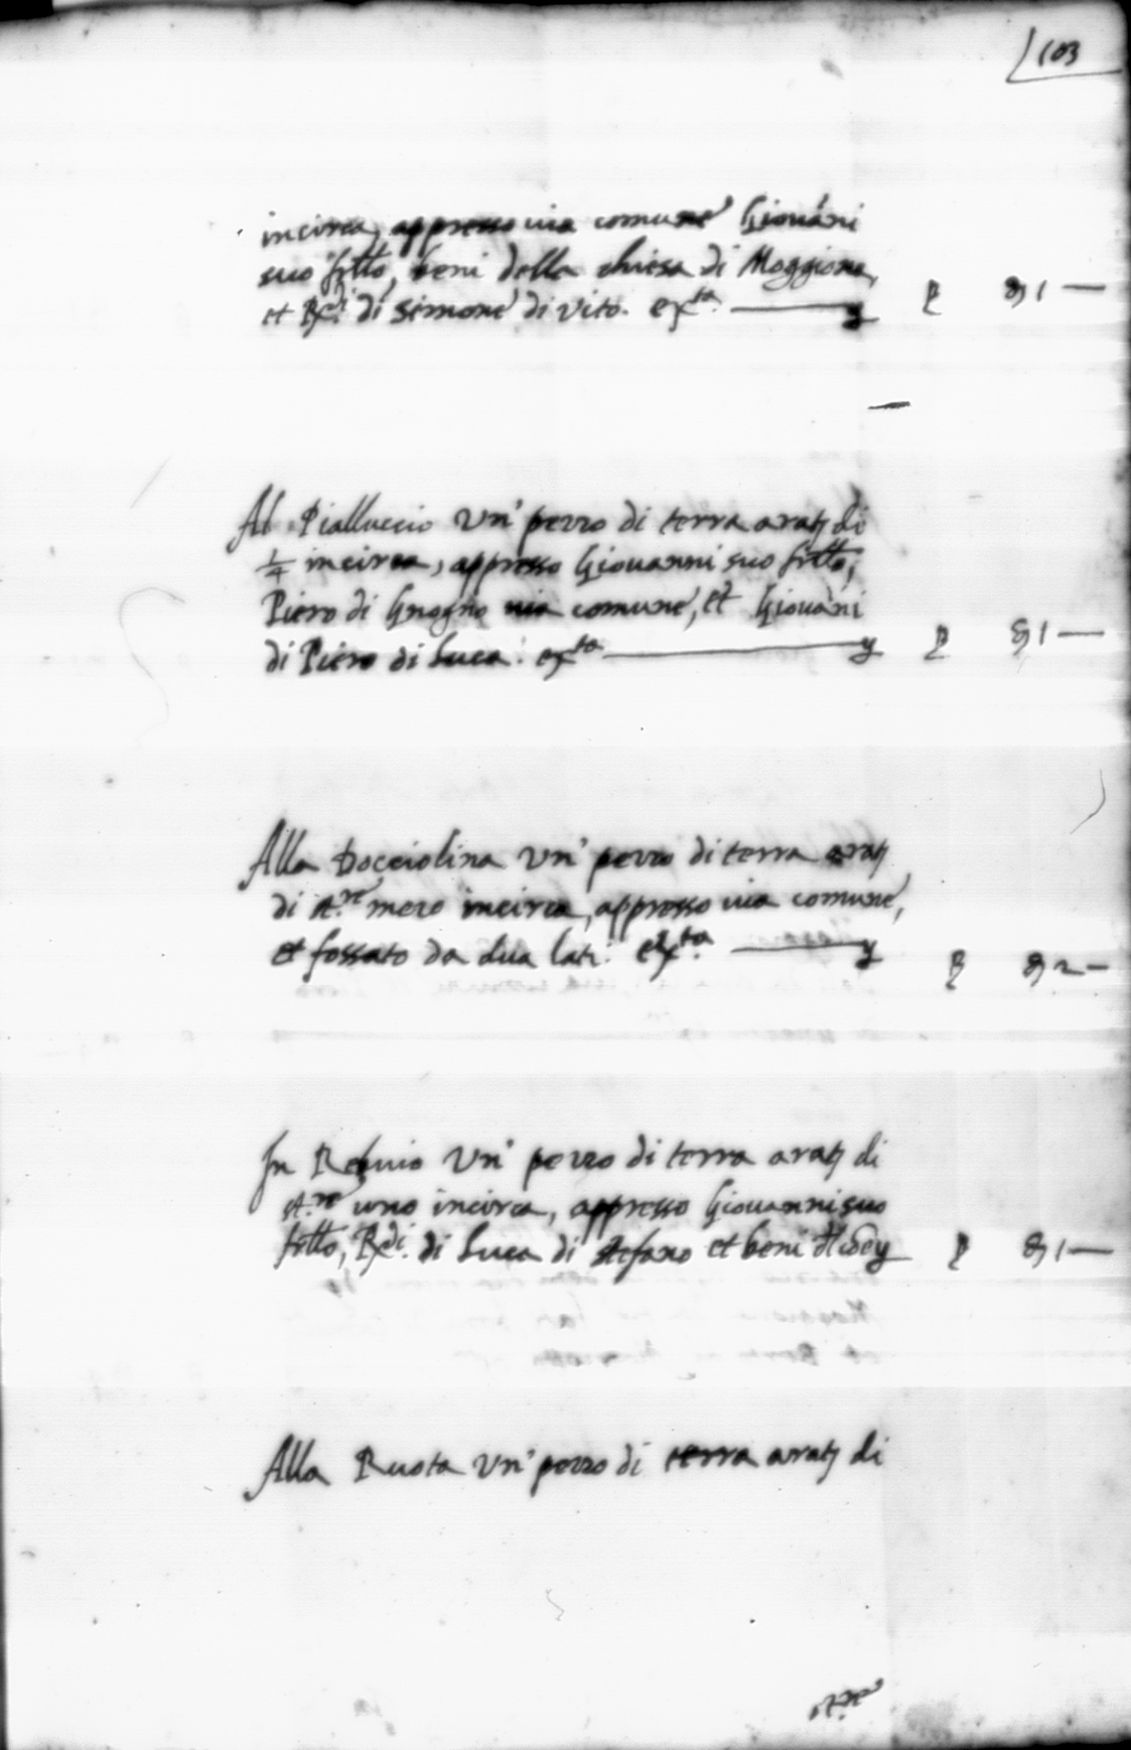 103
incirca, appresso via comune Giovani
suo frtto, beni della chiesa di Moggiona,
et Rꝝdi di Simone di Vito. exta. —— y   ꝑ   1 —
Al Pialluccio Un' pezzo di terra aratj di
1/4 incirca, appresso Giovanni suo frtto,
Piero di Gnogno via comune, et Giovani
di Piero di Luca. exta —— y   ꝑ   1 —
Alla Docciolina Un' pezzo di terra aratj
di st.re mezo incirca, appresso via comune,
et fossato da dua lati. exta. —— y   ꝑ   2 —
In Un' pezzo di terra aratj di
st.re uno incirca, appresso Giovanni suo
frtto, Rꝝdi. di Luca di Stefano et beni   ꝑ   1 —
Alla Ruota Un' pezzo di terra aratj di
st.re